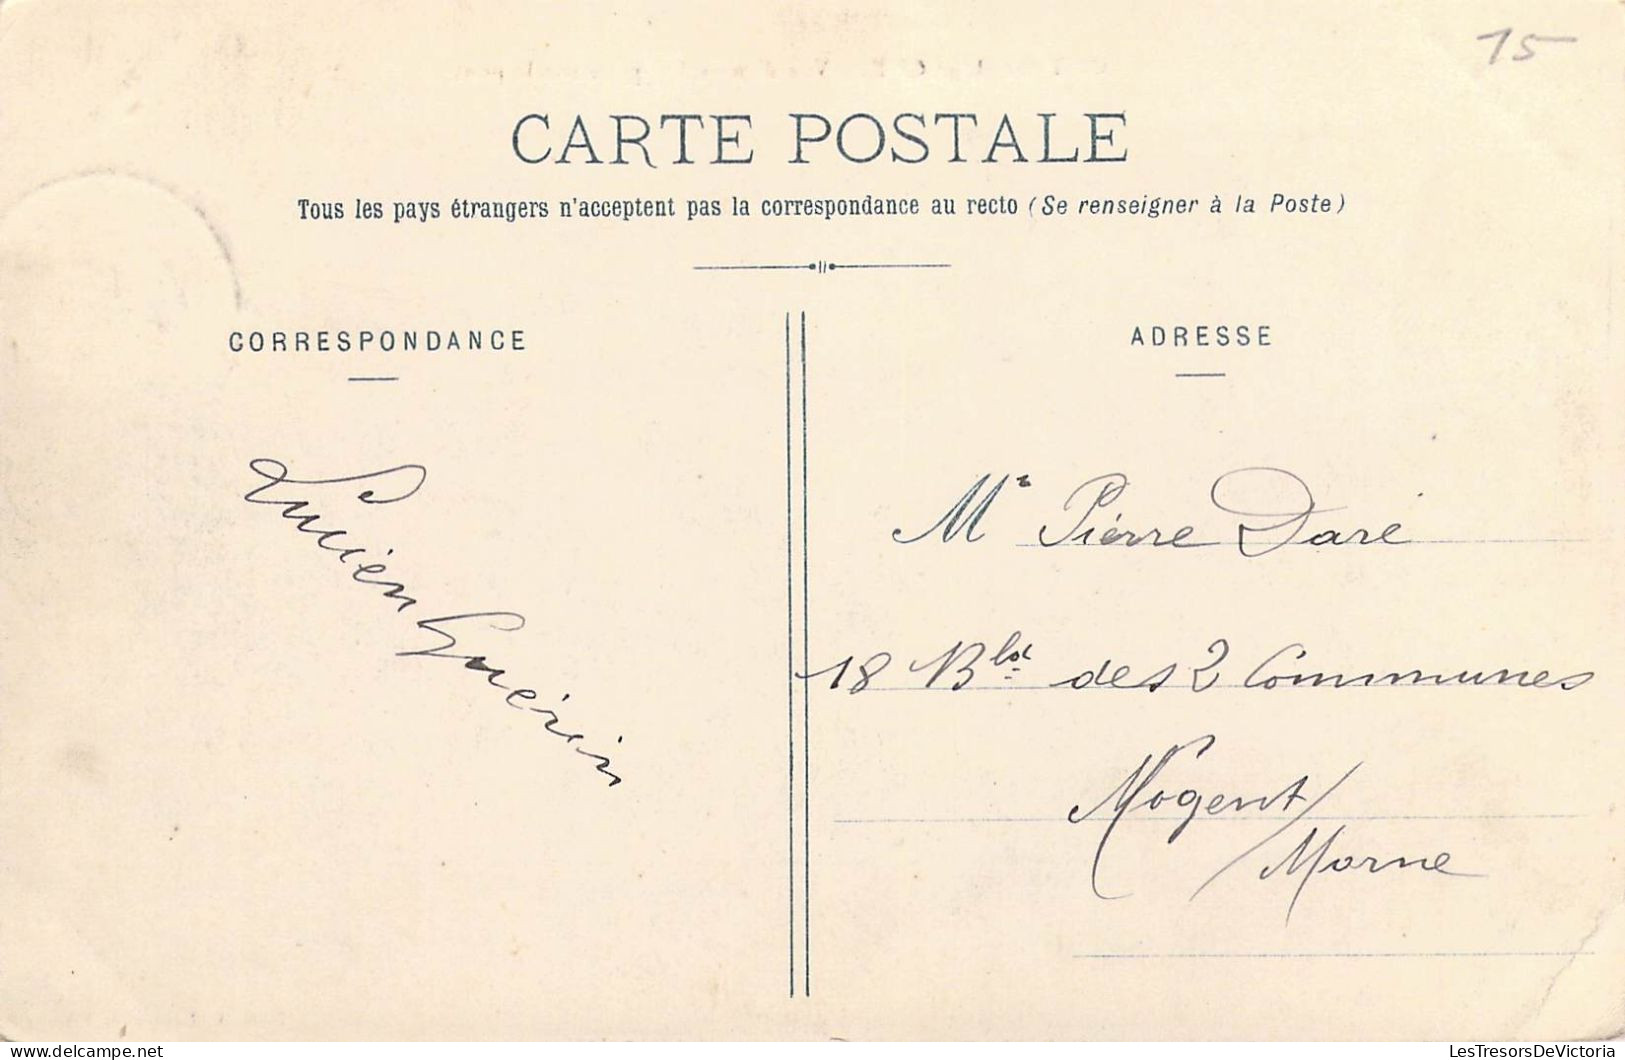 15
CARTE POSTALE
Tous les pays étrangers n'acceptent pas la correspondance au recto (Se renseigner à la Poste)
CORRESPONDANCE
Lucien Guérin
ADRESSE
Mr Pierre Daré
18 Bld des 2 Communes
Nogent/
/Marne
LesTresorsDeVictoria